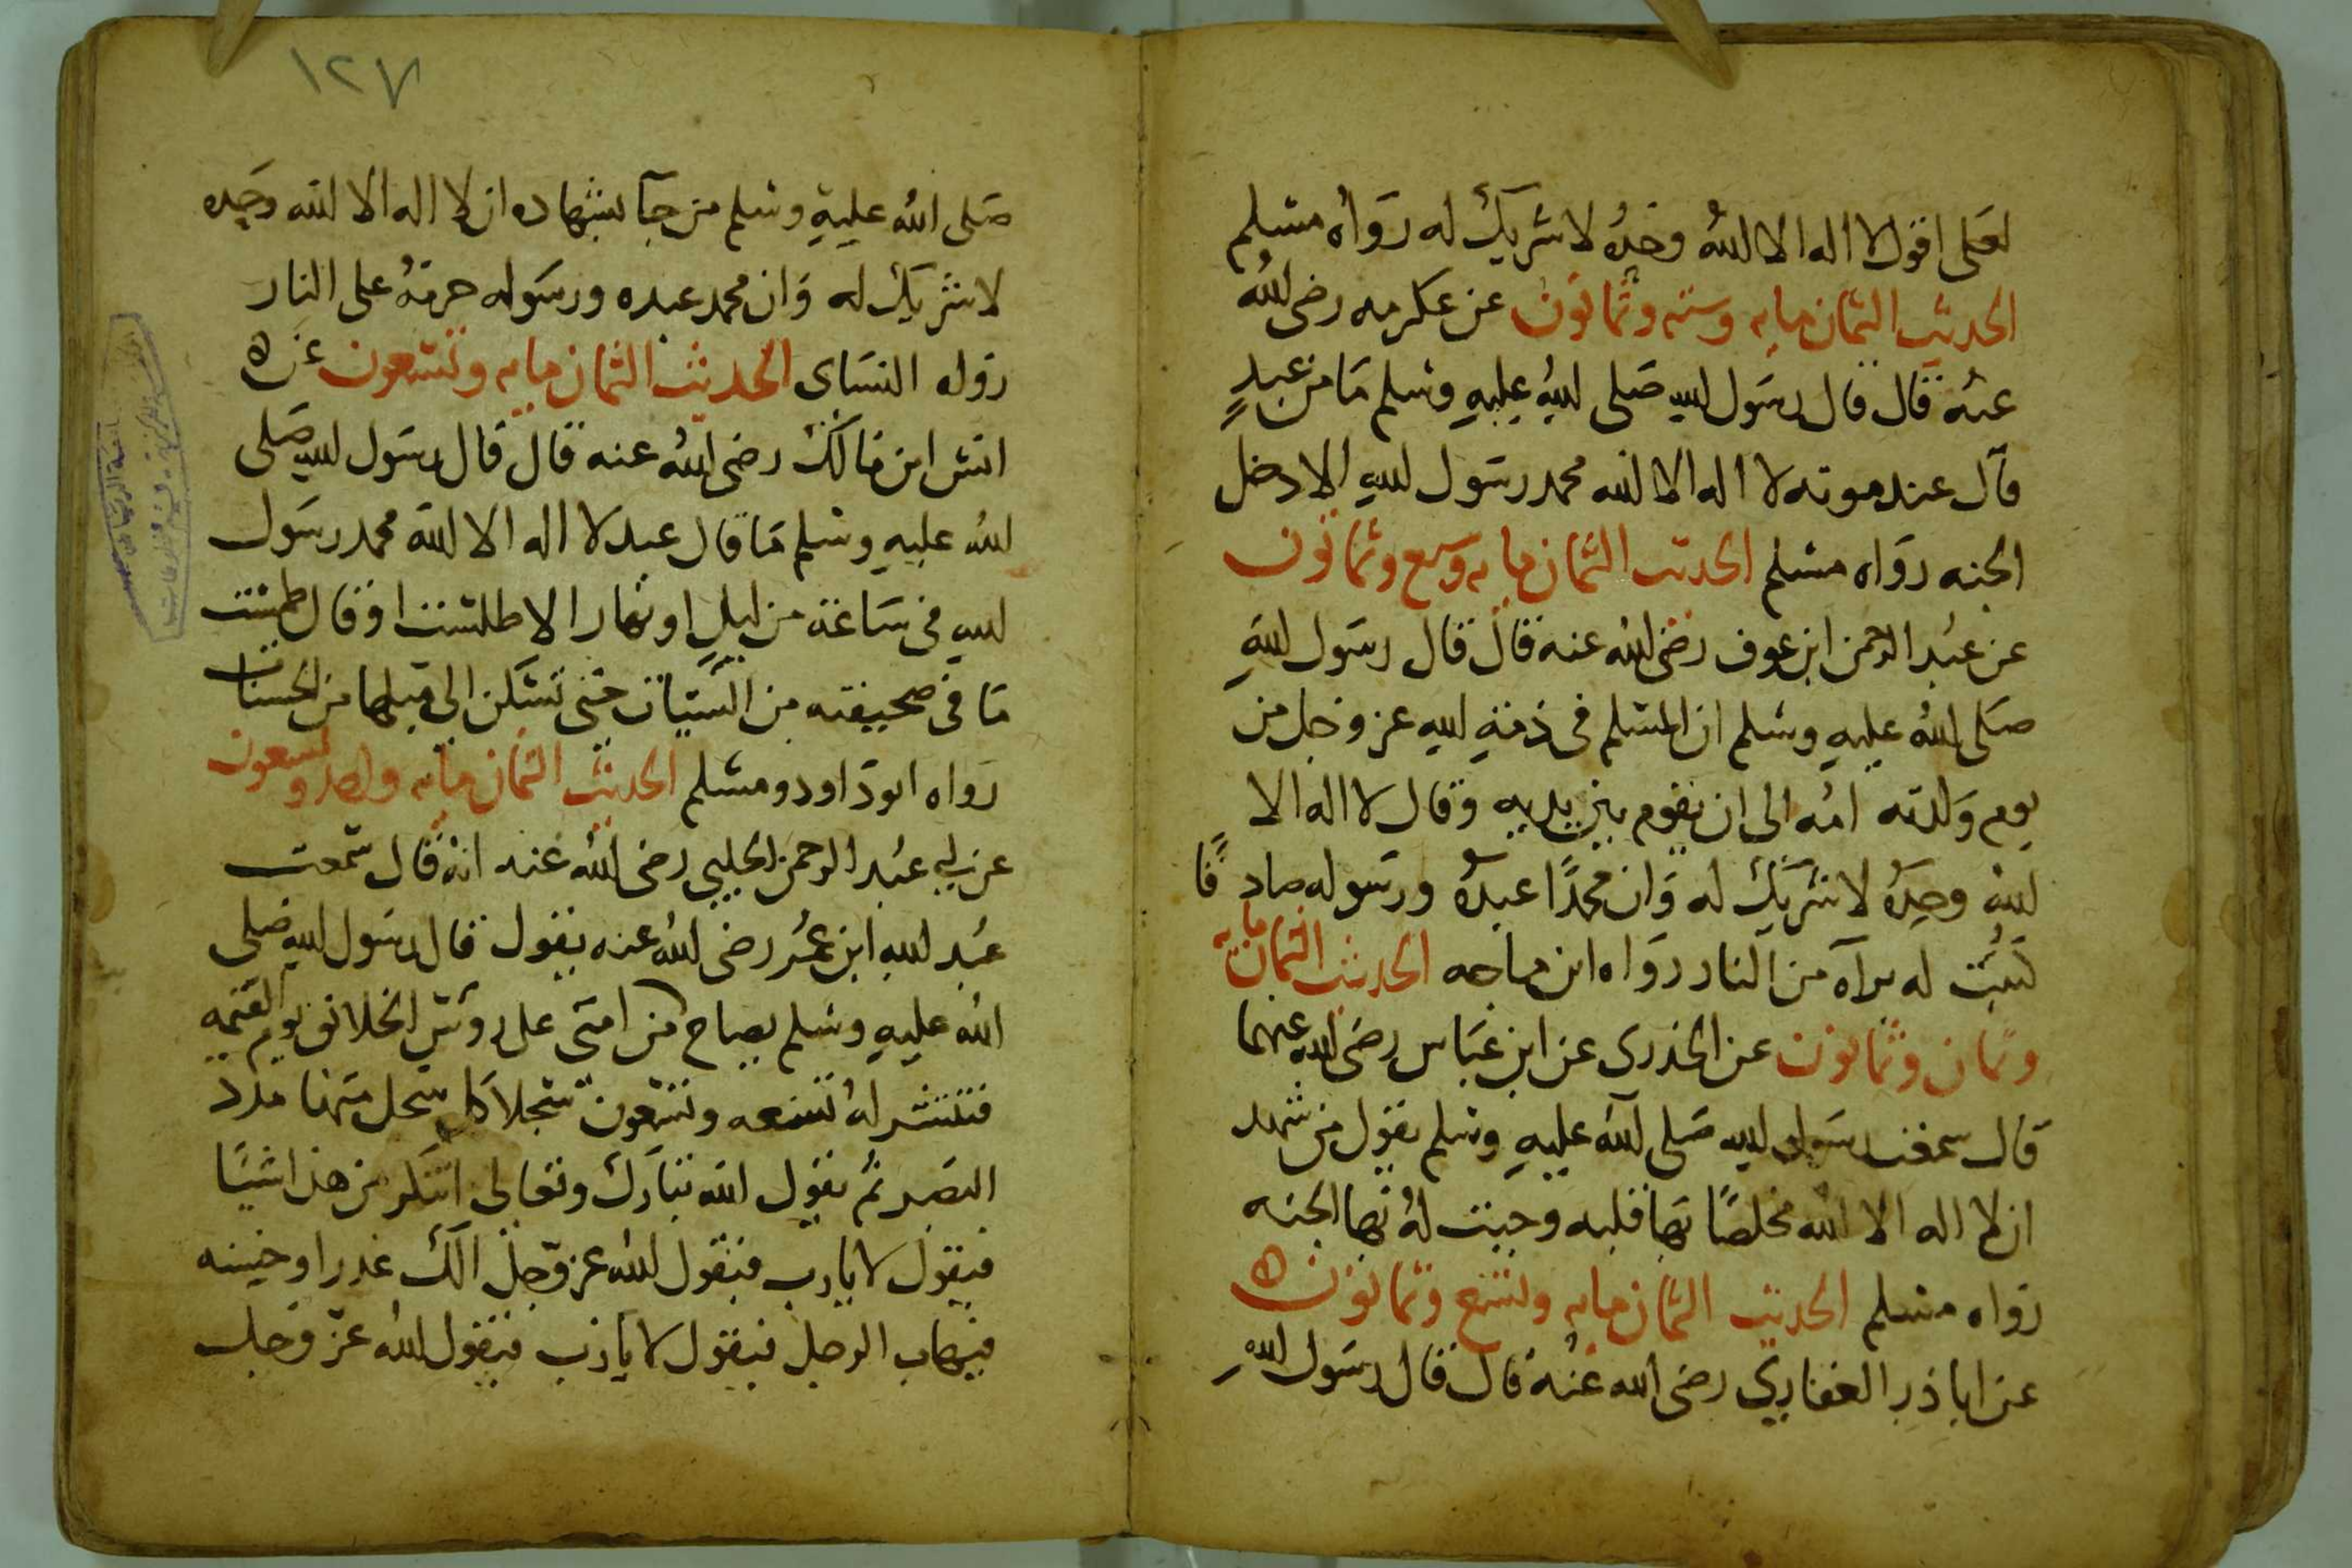 لعلى اقول لا اله الا الله وحدهُ لا شريك له رواه مسلم
الحديث الثمان مايه وسته وثمانون عن عكرمه رضى الله
عنه قال قال رسول الله صلى الله عليه وسلم ما من عبدٍ
قال عند موته لا اله الا الله محمد رسول الله الا دخل
الجنه رواه مسلم الحديث الثمان مايه وسبع وثمانون
عن عبد الرحمن ابن عوف رضى الله عنه قال قال رسول الله
صلى الله عليه وسلم ان المسلم فى ذمة الله عز وجل من
يوم ولدته امه الى ان يقوم بين يديه وقال لا اله الا
الله وحدهُ لا شريك له وان محمدًا عبدهُ ورسوله صادقًا
كتبت له براه من النار رواه ابن ماجه الحديث الثمان مايه
وثمان وثمانون عن الخدرى عن ابن عباس رضى الله عنهما
قال سمعت رسول الله صلى الله عليه وسلم يقول من شهد
ان لا اله الا الله مخلصًا بها قلبه وجبت لهُ بها الجنه
رواه مسلم الحديث الثمان مايه وتسع وثمانون ه
عن ابا ذر الغفاري رضى الله عنه قال قال رسول الله
١٢٧
صلى الله عليه وسلم من جآ بشهاده ان لا اله الا الله وحده
لا شريك له وان محمد عبده ورسوله حرمهُ على النار
رواه النساى الحديث الثمان مايه وتسعون عن ه
انس ابن مالك رضى الله عنه قال قال رسول الله صلى
الله عليه وسلم ما قال عبد لا اله الا الله محمد رسول
الله فى ساعة من ليلٍ او نهار الا طلست او قال طمست
ما فى صحيفته من السيات حتى تسكن الى مثلها من الحسنات
رواه ابو داود ومسلم الحديث الثمان مايه واحد وتسعون
عن ابي عبد الرحمن الحلبي رضى الله عنه انه قال سمعت
عبد الله ابن عمر رضى الله عنه يقول قال رسول الله صلى
الله عليه وسلم يصاح من امتى على روس الخلائق يوم القيمه
فتنشر لهُ تسعه وتسعون سجلا كل سجل منها مدد
البصر ثم يقول الله تبارك وتعالى اتنكر من هذا شيًا
فيقول لا يا رب فيقول الله عز وجل الك عذرا وحسنه
فيهاب الرجل فيقول لا يا رب فيقول الله عز وجل